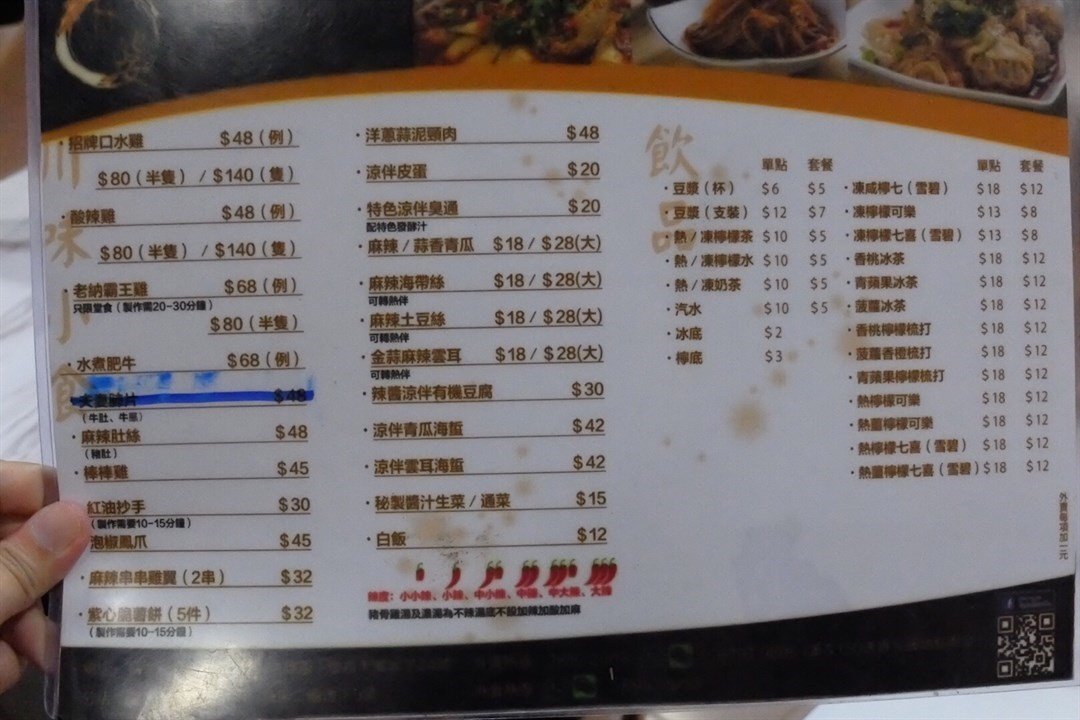 川味小食
·招牌口水雞 $48（例）
$80（半隻）/ $140（隻）
·酸辣雞 $48（例）
$80（半隻）/ $140（隻）
·老納霸王雞 $68（例）
只限堂食（製作需20-30分鐘）
$80（半隻）
·水煮肥牛 $68（例）
·夫妻肺片 $48
（牛肚、牛𦟌）
·麻辣肚絲 $48
（豬肚）
·棒棒雞 $45
·紅油抄手 $30
（製作需要10-15分鐘）
·泡椒鳳爪 $45
·麻辣串串雞翼（2串） $32
·紫心脆薯餅（5件） $32
（製作需要10-15分鐘）
·洋蔥蒜泥頸肉 $48
·涼伴皮蛋 $20
·特色涼伴臭通 $20
配特色發酵汁
·麻辣 / 蒜香青瓜 $18 / $28(大)
·麻辣海帶絲 $18 / $28(大)
可轉熱伴
·麻辣土豆絲 $18 / $28(大)
可轉熱伴
·金蒜麻辣雲耳 $18 / $28(大)
可轉熱伴
·辣醬涼伴有機豆腐 $30
·涼伴青瓜海蜇 $42
·涼伴雲耳海蜇 $42
·秘製醬汁生菜 / 通菜 $15
·白飯 $12
辣度：小小辣、小辣、中小辣、中辣、中大辣、大辣
豬骨雞湯及濃湯為不辣湯底不設加辣加酸加麻
飲品
單點 套餐
·豆漿（杯） $6 $5
·豆漿（支裝） $12 $7
·熱 / 凍檸檬茶 $10 $5
·熱 / 凍檸檬水 $10 $5
·熱 / 凍奶茶 $10 $5
·汽水 $10 $5
·冰底 $2
·檸底 $3
單點 套餐
·凍咸檸七（雪碧） $18 $12
·凍檸檬可樂 $13 $8
·凍檸檬七喜（雪碧） $13 $8
·香桃冰茶 $18 $12
·青蘋果冰茶 $18 $12
·菠蘿冰茶 $18 $12
·香桃檸檬梳打 $18 $12
·菠蘿香橙梳打 $18 $12
·青蘋果檸檬梳打 $18 $12
·熱檸檬可樂 $18 $12
·熱薑檸檬可樂 $18 $12
·熱檸檬七喜（雪碧） $18 $12
·熱薑檸檬七喜（雪碧） $18 $12
外賣每項加一元